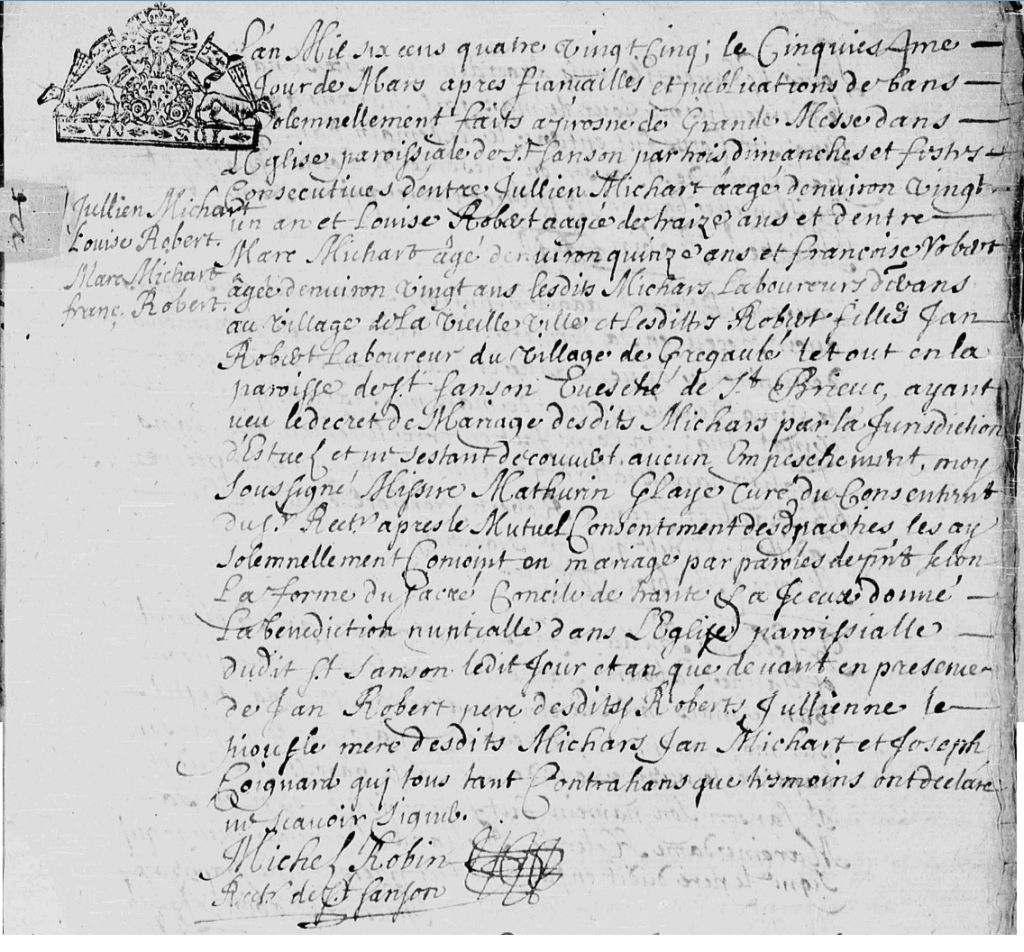 BRETAGNE
UN SOL
L'an Mil six cens quatre vingt Cinq; le Cinquiesme
Jour de Mars apres fiançailles et publications de bans
solemnellement faits a prosne de Grande Messe dans
L'Eglise paroissiale de St. Sanson par trois dimanches et festes
Consecutives d'entre Jullien Michart aagé denviron vingt
un an et Louise Robert aagée de traize ans et dentre
Marc Michart âgé denviron quinze ans et francoise Robert
âgée denviron vingt ans lesdits Michars Laboureurs
au village de La Vieille Ville et Lesdittes Robert filles Jan
Robert Laboureur du village de Gregaulé le tout en la
paroisse de St. Sanson Evesché de St. Brieuc, ayant
veu le decret de Mariage desdits Michars par la Jurisdiction
d'Estuel et ne sestant decouvert aucun Empeschement, moy
soussigné Missire Mathurin Glaye Curé du Consentemt
du Sr. Rectr apres le Mutuel Consentement desd parties les ay
solemnellement Conjoint en mariage par paroles de prnt selon
La forme du sacré Concile de trante et a Iceux donné
La benediction nuntialle dans L'Eglise paroissialle
dudit St. Sanson ledit Jour et an que devant en presence
de Jan Robert pere desdits Roberts, Jullienne le
mere desdits Michars, Jan Michart et Joseph
Coignard qui tous tant Contrahans que tesmoins ont declare
ne scavoir signer.
Michel Robin
Rectr de St. Sanson
Jullien Michart
Louise Robert.
Marc Michart
franç. Robert.